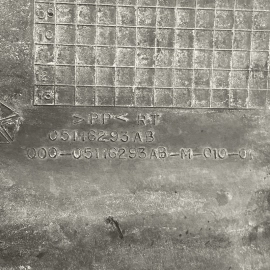 >PP< RT
05116293AB
000-05116293AB-M-010-0